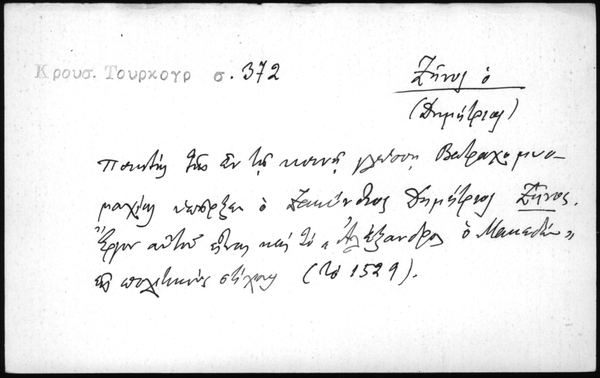 Κρουσ. Τουρκογρ σ. 372
Ζῆνος ὁ
(Δημήτριος)
ποιητὴς τῆς ἐν τῇ κοινῇ γλώσσῃ Βατραχομυο-
μαχίας ὑπῆρξεν ὁ Ζακύνθιος Δημήτριος Ζῆνος.
Ἔργον αὐτοῦ εἶναι καὶ τὸ "Ἀλέξανδρος ὁ Μακεδών"
εἰς πολιτικοὺς στίχους (τὸ 1529).